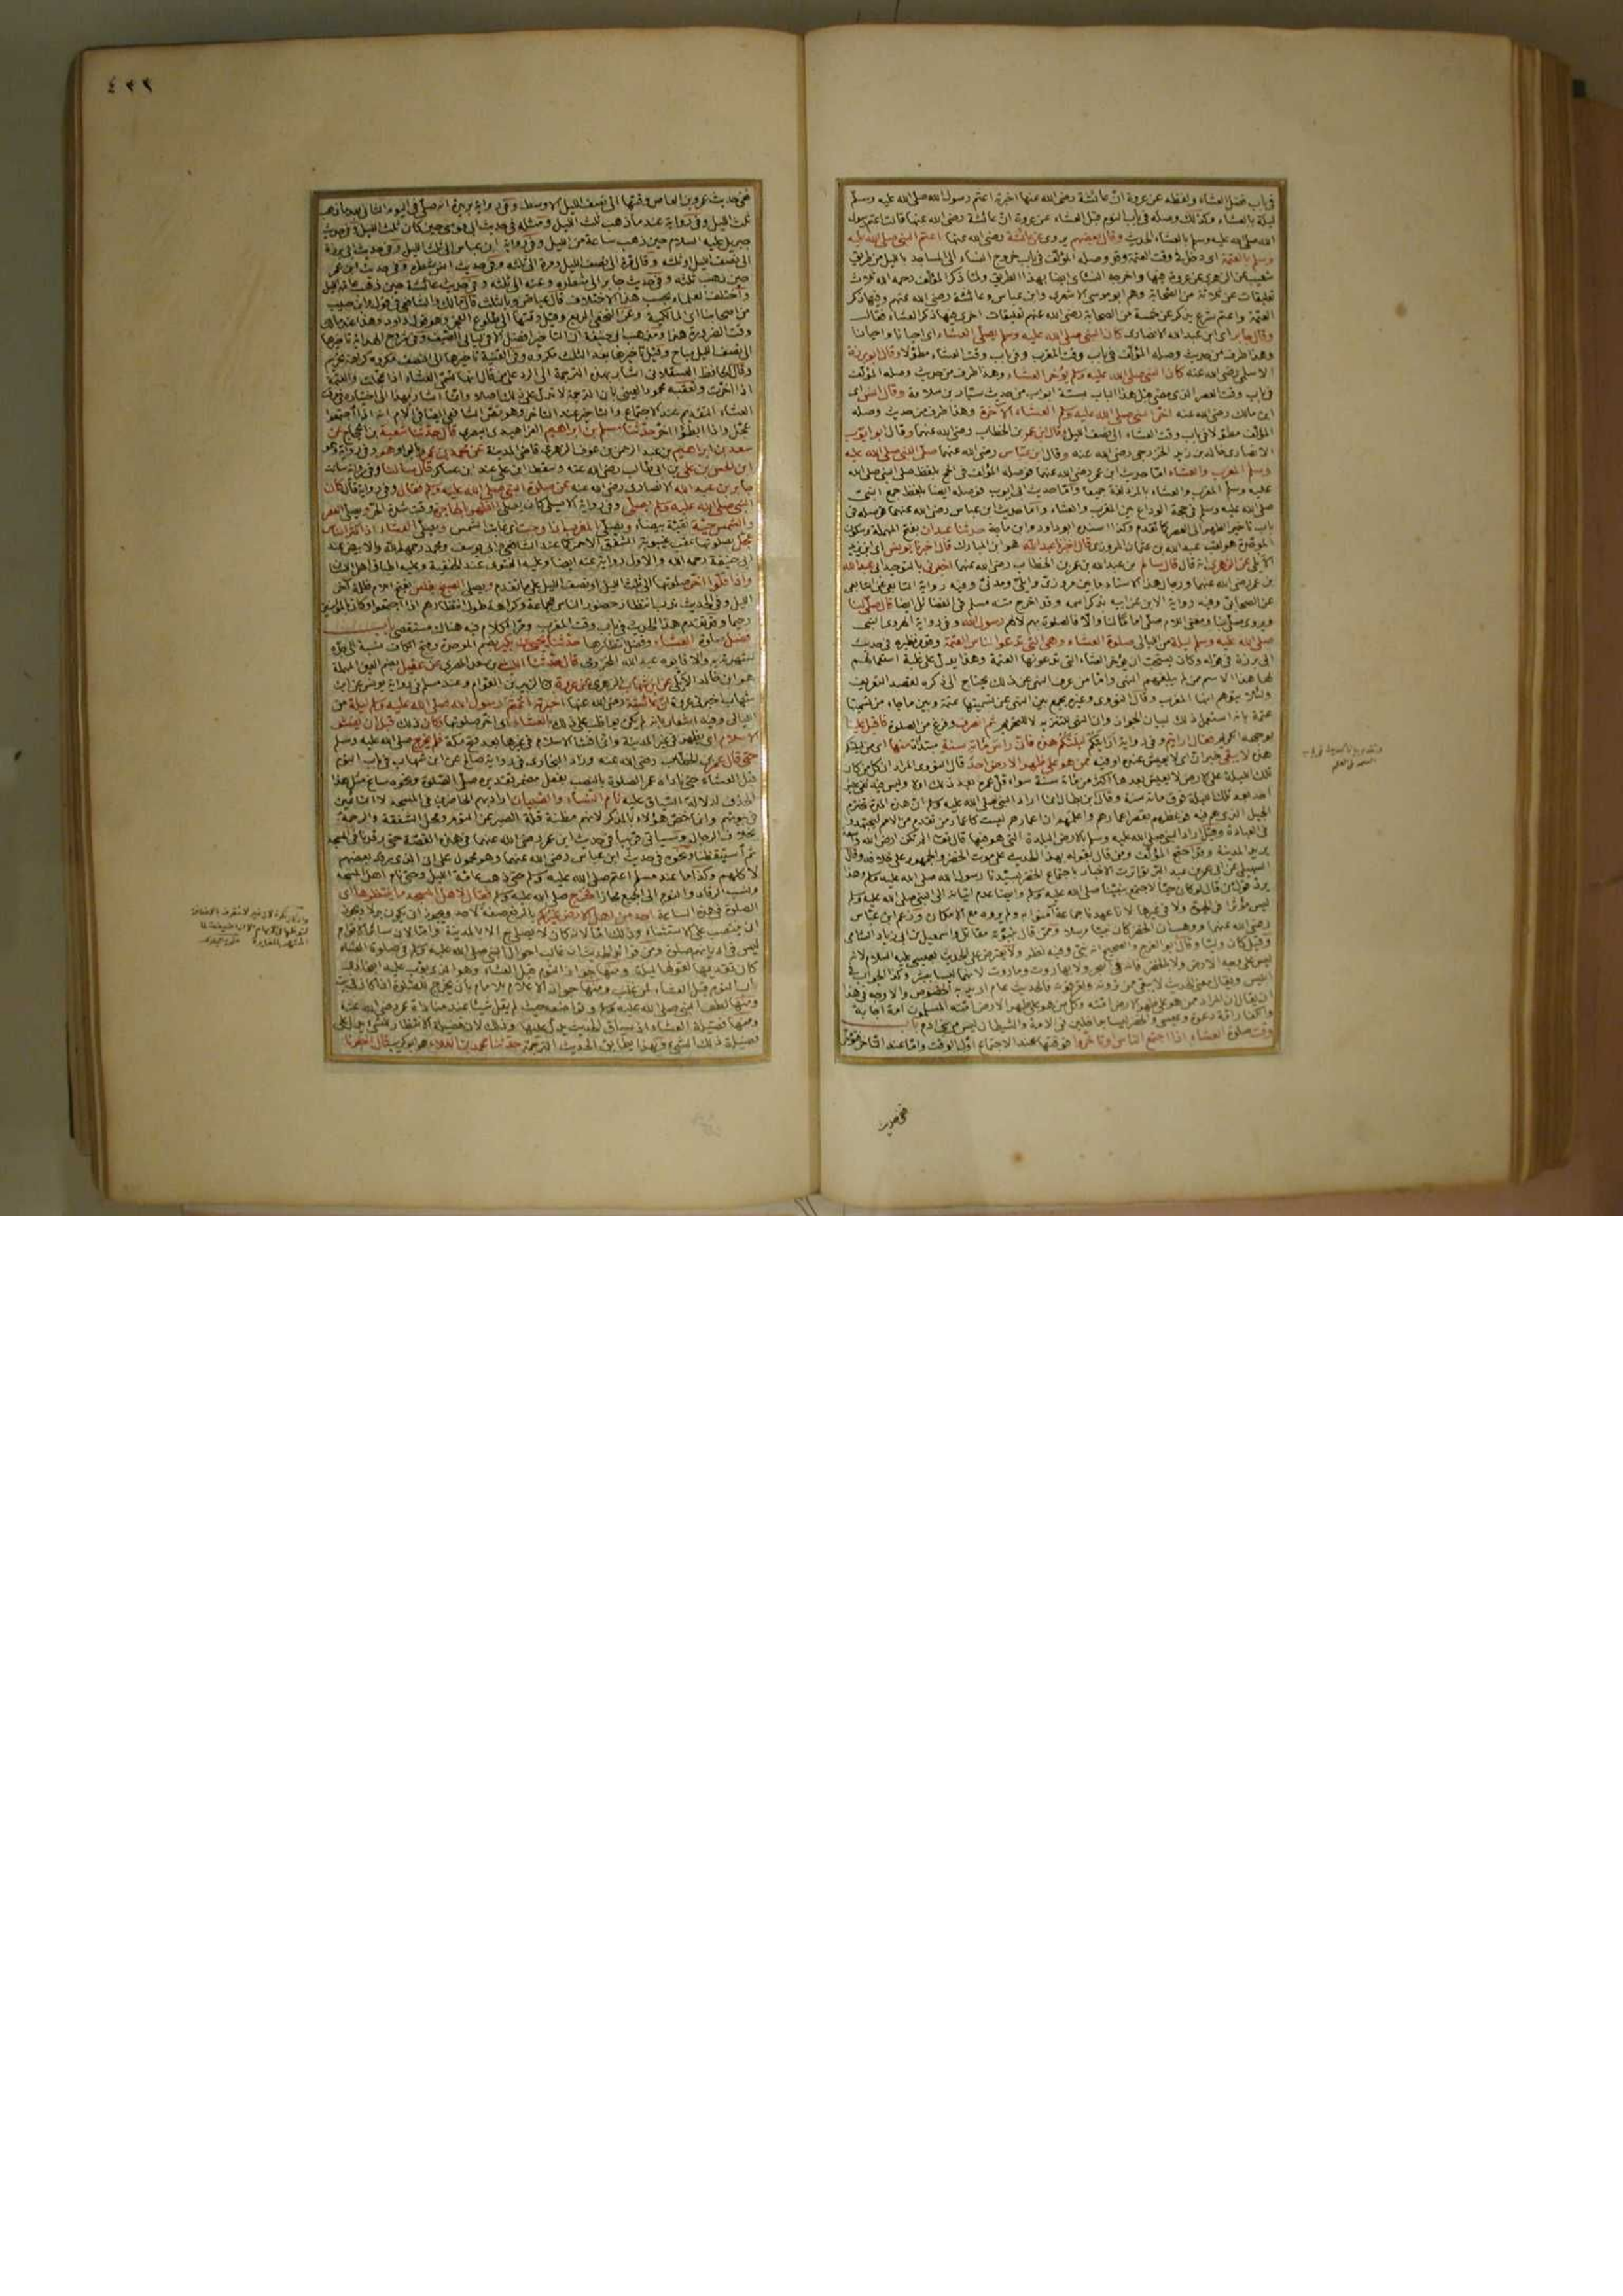 في باب فضل العشاء ولفظه عن عروة ان عائشة رضي الله عنها اخبرته اعتم رسول الله صلى الله عليه وسلم
ليلة بالعشاء وكذلك وصله في باب النوم قبل العشاء عن عروة ان عائشة رضي الله عنها قالت اعتم رسول
الله صلى الله عليه وسلم بالعشاء الحديث وقال بعضهم يروى عن عائشة رضي الله عنها اعتم النبي صلى الله عليه
وسلم بالعتمة اى دخل في وقت العتمة وقد وصله المؤلف في باب خروج النساء الى المساجد بالليل من طريق
شعيب عن الزهرى عن عروة عنها واخرجه النسائى ايضا بهذا الطريق ولما ذكر المؤلف رحمه الله ثلاث
تعليقات عن ثلاثة من الصحابة وهم ابو موسى الاشعرى وابن عباس وعائشة رضي الله عنهم وفيها ذكر
العتمة واعتم شرع يذكر عن خمسة من الصحابة رضي الله عنهم تعليقات اخرى فيها ذكر العشاء فقال
وقال جابر اى ابن عبد الله الانصارى كان النبي صلى الله عليه وسلم يصلى العشاء اى احيانا واحيانا
وهذا طرف من حديث وصله المؤلف في باب وقت المغرب وفي باب وقت العشاء مطولا وقال ابو برزة
الاسلمى رضي الله عنه كان النبي صلى الله عليه وسلم يؤخر العشاء وهذا طرف من حديث وصله المؤلف
في باب وقت العصر الذى مضى قبل هذا الباب بستة ابواب من حديث سيار بن سلامة وقال انس اى
ابن مالك رضي الله عنه اخر النبي صلى الله عليه وسلم العشاء الآخرة وهذا طرف من حديث وصله
المؤلف مطولا في باب وقت العشاء الى نصف الليل وقال ابن عمر بن الخطاب رضي الله عنهما وقال ابو ايوب
الانصارى خالد بن زيد الخزرجى رضي الله عنه وقال ابن عباس رضي الله عنهما صلى النبي صلى الله عليه
وسلم المغرب والعشاء اما حديث ابن عمر رضي الله عنهما فوصله المؤلف في الحج بلفظ صلى النبي صلى الله
عليه وسلم المغرب والعشاء بالمزدلفة جميعا واما حديث ابى ايوب فوصله ايضا بلفظ جمع النبي
صلى الله عليه وسلم في حجة الوداع بين المغرب والعشاء واما حديث ابن عباس رضي الله عنهما فوصله في
باب تاخير الظهر الى العصر كما تقدم وكذا اسنده ابو داود وابن ماجة حدثنا عبدان بفتح المهملة وسكون
الموحدة هو لقب عبد الله بن عثمان المروزى قال اخبرنا عبد الله هو ابن المبارك قال اخبرنا يونس اى ابن يزيد
الايلى عن الزهرى انه قال قال سالم بن عبد الله بن عمر بن الخطاب رضي الله عنهما اخبرني بالتوحيد ابى عبد الله
بن عمر رضي الله عنهما ورجال هذا الاسناد ما بين مروزى وايلى ومدنى وفيه رواية التابعى عن التابعى
عن الصحابى وفيه رواية الابن عن ابيه بذكر اسمه وقد اخرج متنه مسلم في الفضائل ايضا قال صلى لنا
ويروى صلى بنا ومعنى اللام صلى اماما لنا والا فالصلوة لله لا لهم رسول الله وفي رواية الهروى النبي
صلى الله عليه وسلم ليلة من الليالى صلوة العشاء وهى التى تدعو الناس العتمة وقد مر نظيره في حديث
ابى برزة في قوله وكان يستحب ان يؤخر العشاء التى تدعونها العتمة وهذا يدل على غلبة استعمالهم
لها هذا الاسم ممن لم يبلغهم النهى واما من عرف النهى عن ذلك يحتاج الى ذكره لقصد التعريف
ولئلا يتوهم انها المغرب وقال النووى وغيره يجمع بين النهى عن تسميتها عتمة وبين ما جاء من تسميتها
عتمة بانه استعمل ذلك لبيان الجواز وان النهى للتنزيه لا للتحريم ثم انصرف وفرغ من الصلوة فاقبل علينا
بوجهه الكريم فقال ارايتم وفي رواية ارايتكم ليلتكم هذه فان راس مائة سنة مبتدأة منها اى من ليلتكم
هذه لا يبقى خبر ان اى لا يعيش عنده او فيه ممن هو على ظهر الارض احد قال النووى المراد ان كل من كان
تلك الليلة على الارض لا يعيش بعدها اكثر من مائة سنة سواء قل عمره بعد ذلك ام لا وليس فيه نفى عيش
احد بعد تلك الليلة فوق مائة سنة وقال ابن بطال انما اراد النبي صلى الله عليه وسلم ان هذه المدة تخترم
الجيل الذى هم فيه فوعظهم بقصر اعمارهم واعلمهم ان اعمارهم ليست كاعمار من تقدم من الامم ليجتهدوا
في العبادة وقيل اراد النبي صلى الله عليه وسلم بالارض البلدة التى هو فيها قال تعالى الم تكن ارض الله واسعة
يريد المدينة وقد احتج المؤلف ومن قال بقوله بهذا الحديث على موت الخضر والجمهور على خلافه وقال
السهيلى عن ابى عمر بن عبد البر تواترت الاخبار باجتماع الخضر بسيدنا رسول الله صلى الله عليه وسلم وهذا
يرد قول من قال لو كان حيا لاجتمع بنبينا صلى الله عليه وسلم وايضا عدم اتيانه الى النبي صلى الله عليه وسلم
ليس مؤثرا في الحيوة ولا في غيرها لانا عهدنا جماعة آمنوا به ولم يروه مع الامكان وزعم ابن عباس
رضي الله عنهما ووهب ان الخضر كان نبيا مرسلا وممن قال بنبوته مقاتل واسمعيل بن ابى زياد الشامى
وقيل كان وليا وقال ابو الفرج والصحيح انه نبى وفيه نظر ولا يعترض على الحديث بعيسى عليه السلام لانه
ليس على وجه الارض ولا بالخضر فانه في البحر ولا بهاروت وماروت لانهما ليسا ببشر وكذا الجواب في
ابليس ويقال معنى الحديث لا يبقى ممن ترونه وتعرفونه فالحديث عام اريد به الخصوص والاوجه في هذا
ان يقال ان المراد ممن هو على ظهر الارض امته وكل من هو على ظهر الارض امته المسلمون امة اجابة
والكفار امة دعوة وعيسى والخضر ليسا بداخلين في الامة والشيطان ليس من بنى ادم باب
وقت صلوة العشاء اذا اجتمع الناس وتاخروا فوقتها عند الاجتماع اول الوقت واما عند التاخر فوقتها
ففي حديث
٤٣٣
ففي حديث عمرو بن العاص وقتها الى نصف الليل الاوسط وفي رواية بريدة انه صلى في اليوم الثانى بعد ما ذهب
ثلث الليل وفي رواية عند ما ذهب ثلث الليل ومثله في حديث ابى موسى حين كان ثلث الليل وفي حديث
جبريل عليه السلام حين ذهب ساعة من الليل وفي رواية ابن عباس الى ثلث الليل وفي حديث ابى برزة
الى نصف الليل او ثلثه وقال مرة الى نصف الليل ومرة الى ثلثه وفي حديث انس شطره وفي حديث ابن عمر
حين ذهب ثلثه وفي حديث جابر الى شطره وعنه الى ثلثه وفي حديث عائشة حين ذهب عامة الليل
واختلف العلماء بحسب هذا الاختلاف قال عياض وبالثلث قال مالك والشافعى في قول وابن حبيب
من اصحابنا اى المالكية وعن النخعى الربع وقيل وقتها الى طلوع الفجر وهو قول داود وهذا عند مالك
وقت الضرورة هذا ومذهب ابى حنيفة ان التاخير افضل الا في ليالى الصيف وفي شروح الهداية تاخيرها
الى نصف الليل مباح وقيل تاخيرها بعد الثلث مكروه وفي القنية تاخيرها الى النصف مكروه كراهة تحريم
وقال الحافظ العسقلانى اشار بهذه الترجمة الى الرد على من قال انها تسمى العشاء اذا عجلت والعتمة
اذا اخرت وتعقبه محمود العينى بان الترجمة لا تدل على ذلك اصلا وانما اشار بهذا الى اختياره في وقت
العشاء التقديم عند الاجتماع والتاخير عند التاخر وهو نص الشافعى ايضا في الام انه اذا اجتمعوا
عجل واذا ابطؤا اخر حدثنا مسلم بن ابراهيم الفراهيدى البصرى قال حدثنا شعبة بن الحجاج عن
سعد بن ابراهيم بن عبد الرحمن بن عوف الزهرى قاضى المدينة عن محمد بن عمرو بالواو وهو وفي رواية هو
ابن الحسن بن على بن ابى طالب رضي الله عنه وسقط ابن على عند ابن عساكر قال سالنا وفي رواية سالت
جابر بن عبد الله الانصارى رضي الله عنه عن صلوة النبي صلى الله عليه وسلم فقال وفي رواية قال كان
النبي صلى الله عليه وسلم يصلى وفي رواية الاصيلى كان يصلى الظهر بالهاجرة وقت شدة الحر ويصلى العصر
والشمس حية نقية بيضاء ويصلى المغرب اذا وجبت اى غابت الشمس ويصلى العشاء اذا كثر الناس
عجل بصلوتها عقب غيبوبة الشفق الاحمر كما عند الشافعى وابى يوسف ومحمد رحمهم الله والابيض عند
ابى حنيفة رحمه الله والاول رواية عنه ايضا وعليه الفتوى عند الحنفية وعليه اطباق اهل اللسان
واذا قلوا اخر صلوتها الى ثلث الليل او نصف الليل على ما تقدم ويصلى الصبح بغلس بفتح اللام ظلمة آخر
الليل وفي الحديث ندب انتظار حضور الناس للجماعة وكراهة طول انتظارهم اذا اجتمعوا وكان بالمؤمنين
رحيما وقد تقدم هذا الحديث في باب وقت المغرب ومر الكلام فيه هناك مستقصى باب
فضل صلوة العشاء وفضل انتظارها حدثنا يحيى بن بكير بضم الموحدة وفتح الكاف نسبة الى جده
لشهرته به والا فابوه عبد الله المخزومى قال حدثنا الليث بن سعد المصرى عن عقيل بضم العين المهملة
هو ابن خالد الايلى عن ابن شهاب الزهرى عن عروة بن الزبير بن العوام وعند مسلم في رواية يونس عن ابن
شهاب اخبرنى عروة ان عائشة رضي الله عنها اخبرته قالت اعتم رسول الله صلى الله عليه وسلم ليلة من
الليالى وفيه اشعار بانه لم يكن يواظب على ذلك بالعشاء اى اخر صلوتها وكان ذلك قبل ان يفشو
الاسلام اى يظهر في غير المدينة وانما فشا الاسلام في غيرها بعد فتح مكة فلم يخرج صلى الله عليه وسلم
حتى قال عمر بن الخطاب رضي الله عنه وزاد البخارى في رواية صالح عن ابن شهاب في باب النوم
قبل العشاء حتى ناداه عمر الصلوة بالنصب بفعل مضمر تقديره صلى الصلوة ونحوه ساغ مثل هذا
الحذف لدلالة السياق عليه نام النساء والصبيان اراد بهم الحاضرين في المسجد لا النائمين
في بيوتهم وانما خص هؤلاء بالذكر لانهم مظنة قلة الصبر عن النوم ومحل الشفقة والرحمة
بخلاف الرجال وسياتى قريبا في حديث ابن عمر رضي الله عنهما في هذه القصة حتى رقدنا في المسجد
ثم استيقظنا ونحوه في حديث ابن عباس رضي الله عنهما وهو محمول على ان الذى رقد بعضهم
لا كلهم وكذا ما عند مسلم اعتم صلى الله عليه وسلم حتى ذهب عامة الليل وحتى نام اهل المسجد
ونسب الرقاد والنوم الى الجميع مجازا فخرج صلى الله عليه وسلم فقال لاهل المسجد ما ينتظرها اى
الصلوة في هذه الساعة احد من اهل الارض غيركم بالرفع صفة لاحد ويجوز ان يكون بدلا ويجوز
ان ينتصب على الاستثناء وذلك اما لانه كان لا يصلى ح الا بالمدينة واما لان سائر الاقوام
ليس في اديانهم صلوة ومن فوائد الحديث ان غالب احوال النبي صلى الله عليه وسلم في صلوة العشاء
كان تقديمها لقولها ليلة ومنها جواز النوم قبل العشاء وهو الذى بوب عليه البخارى
باب النوم قبل العشاء لمن غلب ومنها جواز الاعلام للامام بان يخرج للصلوة اذا كان في البيت
ومنها لطف النبي صلى الله عليه وسلم وتواضعه حيث لم يقل شيئا عند مناداة عمر رضي الله عنه
ومنها فضيلة العشاء اذ سياق الحديث يدل عليها وذلك لان فضيلة الانتظار للشىء يدل على
فضيلة ذلك الشىء وبهذا يطابق الحديث الترجمة حدثنا محمد بن العلاء هو ابو كريب قال اخبرنا